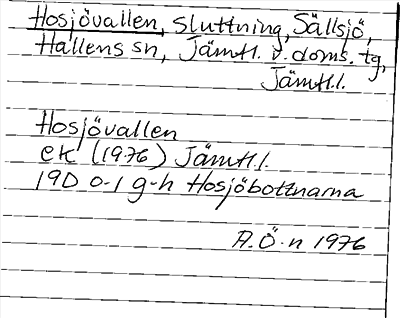 Hosjövallen, sluttning, Sällsjö,
Hallens sn, Jämtl. v. doms. tg,
Jämtl.l.
Hosjövallen
ek (1976) Jämtl.l.
19D 0-1 g-h Hosjöbottnarna
A.Ö-n 1976